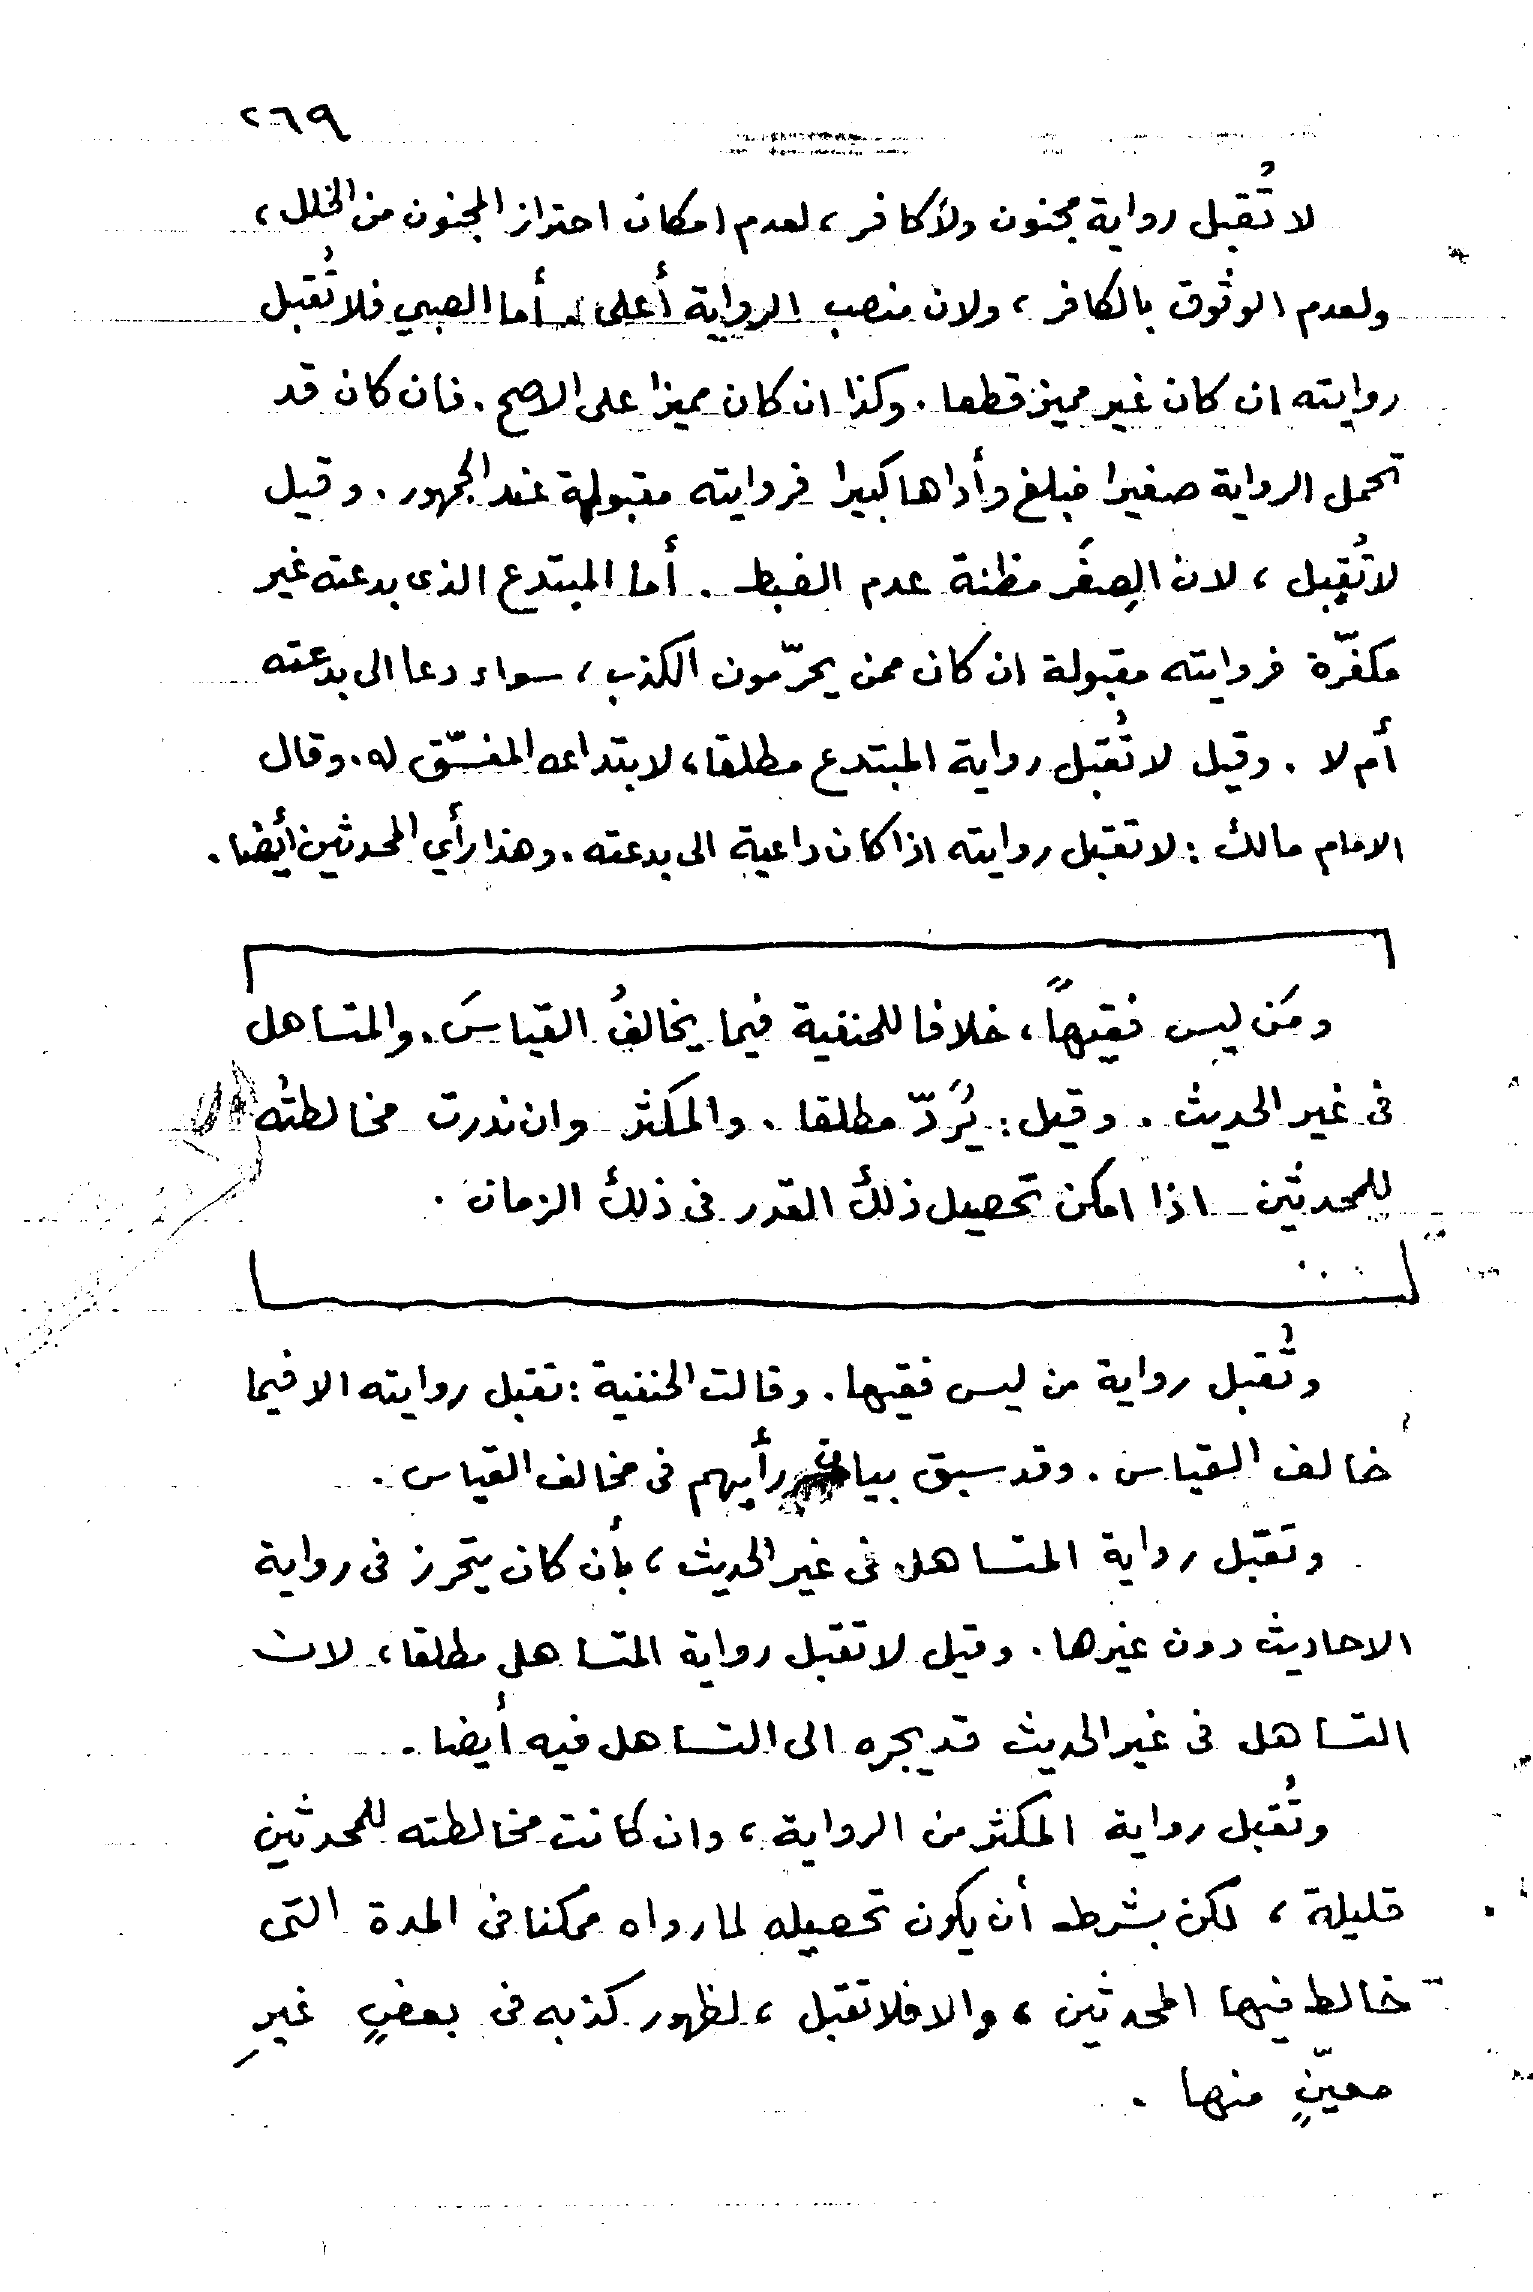 ٢٦٩
لا تُقبل رواية مجنون ولا كافر، لعدم امكان احتراز المجنون من الخلل،
ولعدم الوثوق بالكافر، ولان منصب الرواية أعلى. أما الصبي فلا تُقبل
روايته ان كان غير مميز قطعا. وكذا ان كان مميزا على الاصح. فان كان قد
تحمل الرواية صغيرا فبلغ وأداها كبيرا فروايته مقبولة عند الجمهور. وقيل
لا تُقبل، لان الصِغَر مظنة عدم الضبط. أما المبتدع الذى بدعته غير
مكفّرة فروايته مقبولة ان كان ممن يحرّمون الكذب، سواء دعا الى بدعته
أم لا. وقيل لا تُقبل رواية المبتدع مطلقا، لابتداعه المفسّق له. وقال
الامام مالك: لا تقبل روايته اذا كان داعية الى بدعته. وهذا رأي المحدثين أيضا.
ومَن ليس فقيهاً، خلافا للحنفية فيما يخالفُ القياسَ. والمتساهل
فى غير الحديث. وقيل: يُرَدّ مطلقا. والمكثر وان ندرت مخالطتُه
للمحدثين اذا امكن تحصيل ذلك القدر فى ذلك الزمان.
وتُقبل رواية من ليس فقيها. وقالت الحنفية: تقبل روايته الا فيما
خالف القياس. وقد سبق بيان رأيهم فى مخالف القياس.
وتَقبل رواية المتساهل فى غير الحديث، بأن كان يتحرز فى رواية
الاحاديث دون غيرها. وقيل لا تقبل رواية المتساهل مطلقا، لان
التساهل فى غير الحديث قد يجره الى التساهل فيه أيضا.
وتُقبل رواية المكثر من الرواية، وان كانت مخالطته للمحدثين
قليلة، لكن بشرط أن يكون تحصيله لما رواه ممكنا فى المدة التى
خالط فيها المحدثين، والا فلا تقبل، لظهور كذبه فى بعضٍ غيرِ
معيّنٍ منها.